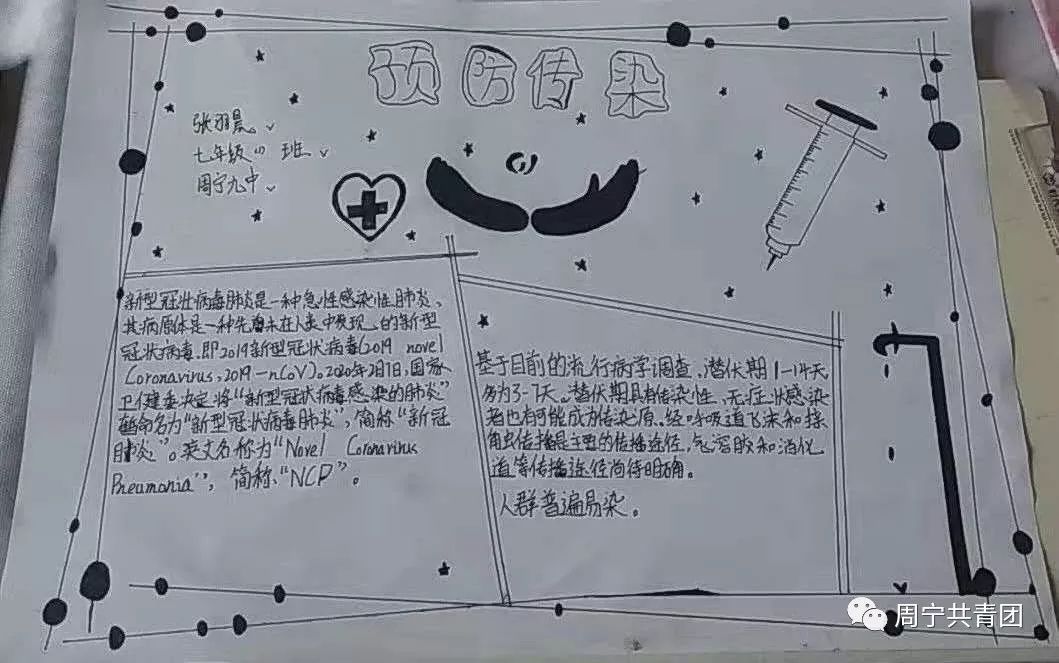 预防传染
张羽晨
七年级(1)班
周宁九中
新型冠状病毒肺炎是一种急性感染性肺炎、
其病原体是一种先前未在人类中发现的新型
冠状病毒.即2019新型冠状病毒(2019 novel
Coronavirus,2019-nCoV)。2020年2月1日,国家
卫健委决定将“新型冠状病毒感染的肺炎”
暂命名为“新型冠状病毒肺炎”,简称“新冠
肺炎”。英文名称为“Novel Coronavirus
Pneumonia”,简称“NCP”。
基于目前的流行病学调查、潜伏期1-14天,
多为3-7天。潜伏期具有传染性、无症状感染
者也有可能成为传染原、经呼吸道飞沫和接
触传播是主要的传播途径,气溶胶和消化
道等传播途径尚待明确。
人群普遍易染。
周宁共青团